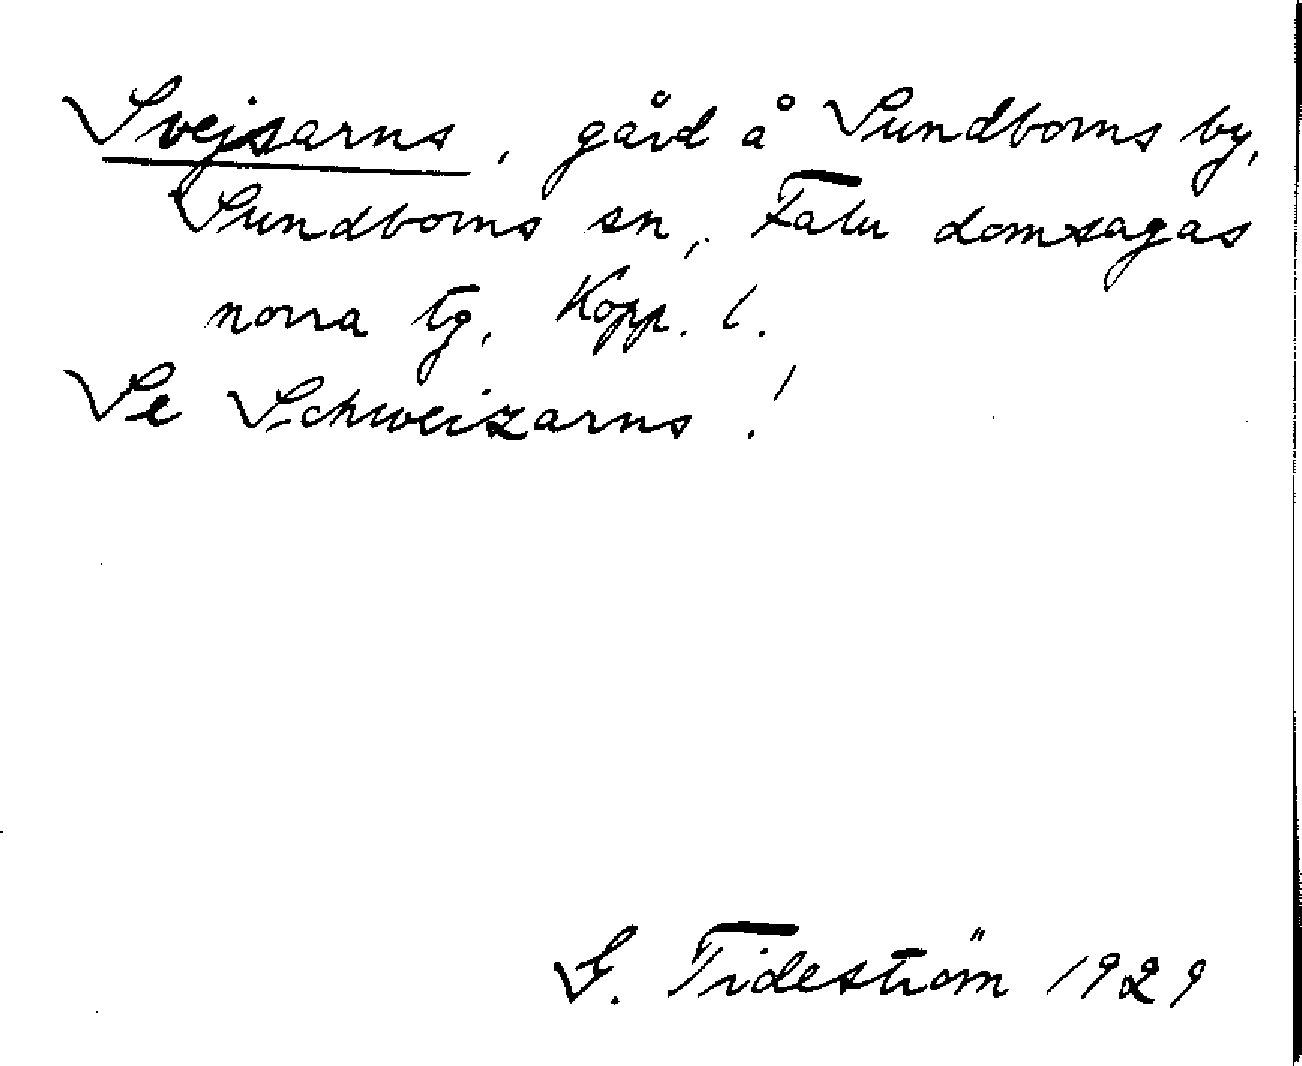 Svejsarns, gård å Sundborns by,
Sundborns sn, Falu domsagas
norra tg, Kopp. l.
Se Schweizarns!
G. Tideström 1929